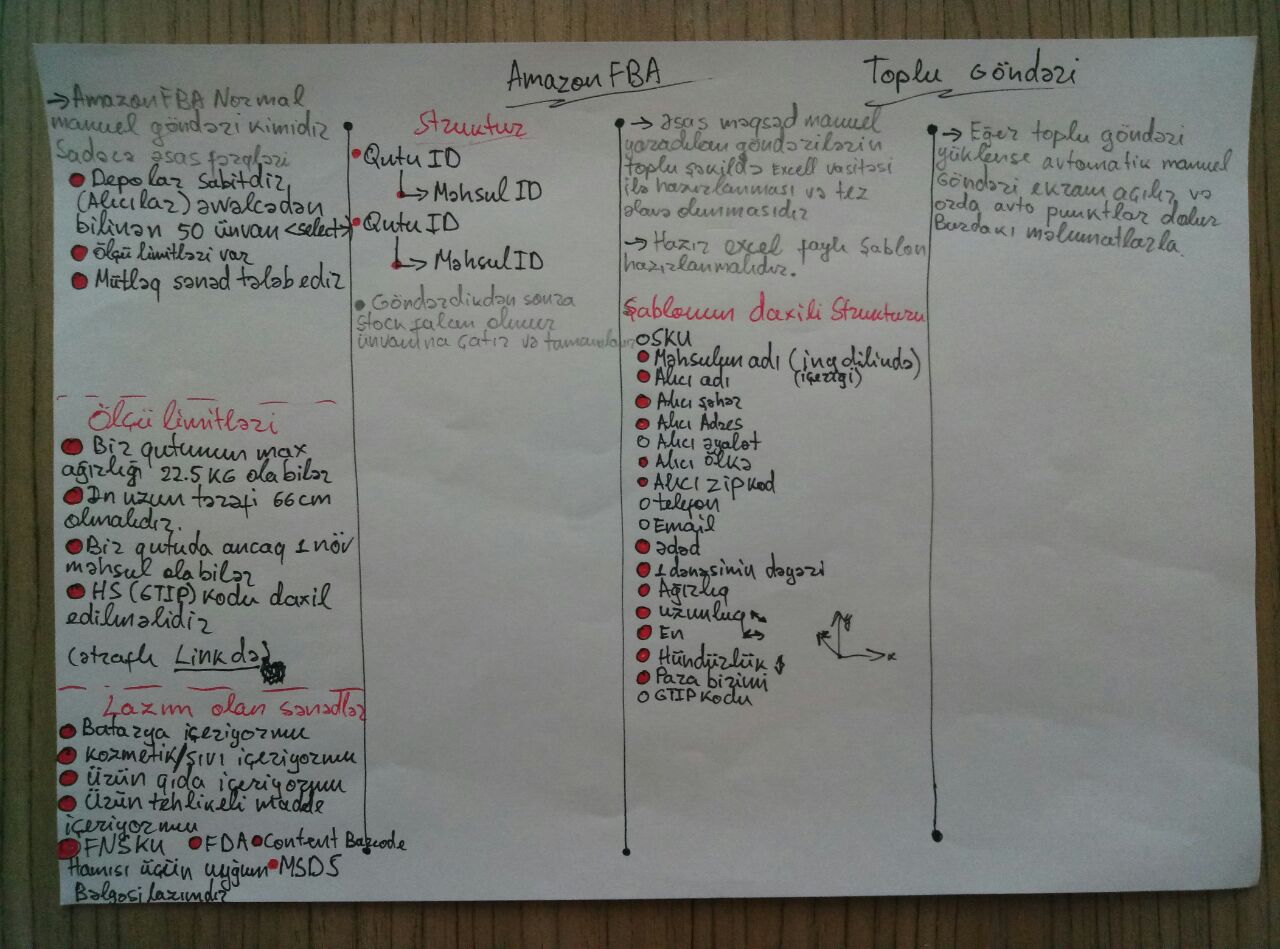 Amazon FBA
Toplu Göndəri
→ Amazon FBA Normal
manuel göndəri kimidir
Sadəcə əsas fərqləri
Depolar Sabitdir
(Alıcılar) əvvəlcədən
bilinən 50 ünvan <select>
Ölçü limitləri var
Mütləq sənəd tələb edir
Ölçü limitləri
Bir qutunun max
ağırlığı 22.5 KG ola bilər
Ən uzun tərəfi 66 cm
olmalıdır.
Bir qutuda ancaq 1 növ
məhsul ola bilər
HS (GTIP) Kodu daxil
edilməlidir
(ətraflı Linkdə)
Lazım olan sənədlər
Batarya içeriyormu
Kozmetik/Sıvı içeriyormu
Ürün gıda içeriyormu
Ürün tehlikeli madde
içeriyormu
FNSKU FDA Content Barcode
Hamısı üçün uyğun MSDS
Bəlgəsi lazımdır
Struktur
Qutu ID
→ Məhsul ID
Qutu ID
→ Məhsul ID
Göndərdikdən sonra
Stock falan olmur
ünvanına çatır və tamamlanır
→ Əsas məqsəd manuel
yaradılan göndərilərin
toplu şəkildə Excell vasitəsi
ilə hazırlanması və tez
əlavə olunmasıdır
→ Hazır excel faylı Şablon
hazırlanmalıdır.
Şablonun daxili Strukturu
SKU
Məhsulun adı (ing dilində)
(içeriği)
Alıcı adı
Alıcı şəhər
Alıcı Adres
Alıcı əyalət
Alıcı ölkə
Alıcı zip kod
telefon
Email
ədəd
1 dənəsinin dəyəri
Ağırlıq
uzunluq
En
Hündürlük
Para birimi
GTIP Kodu
y
x
→ Eğer toplu göndəri
yüklense avtomatik manuel
Göndəri ekranı açılır və
orda avto punktlar dolur
Burdakı məlumatlarla.